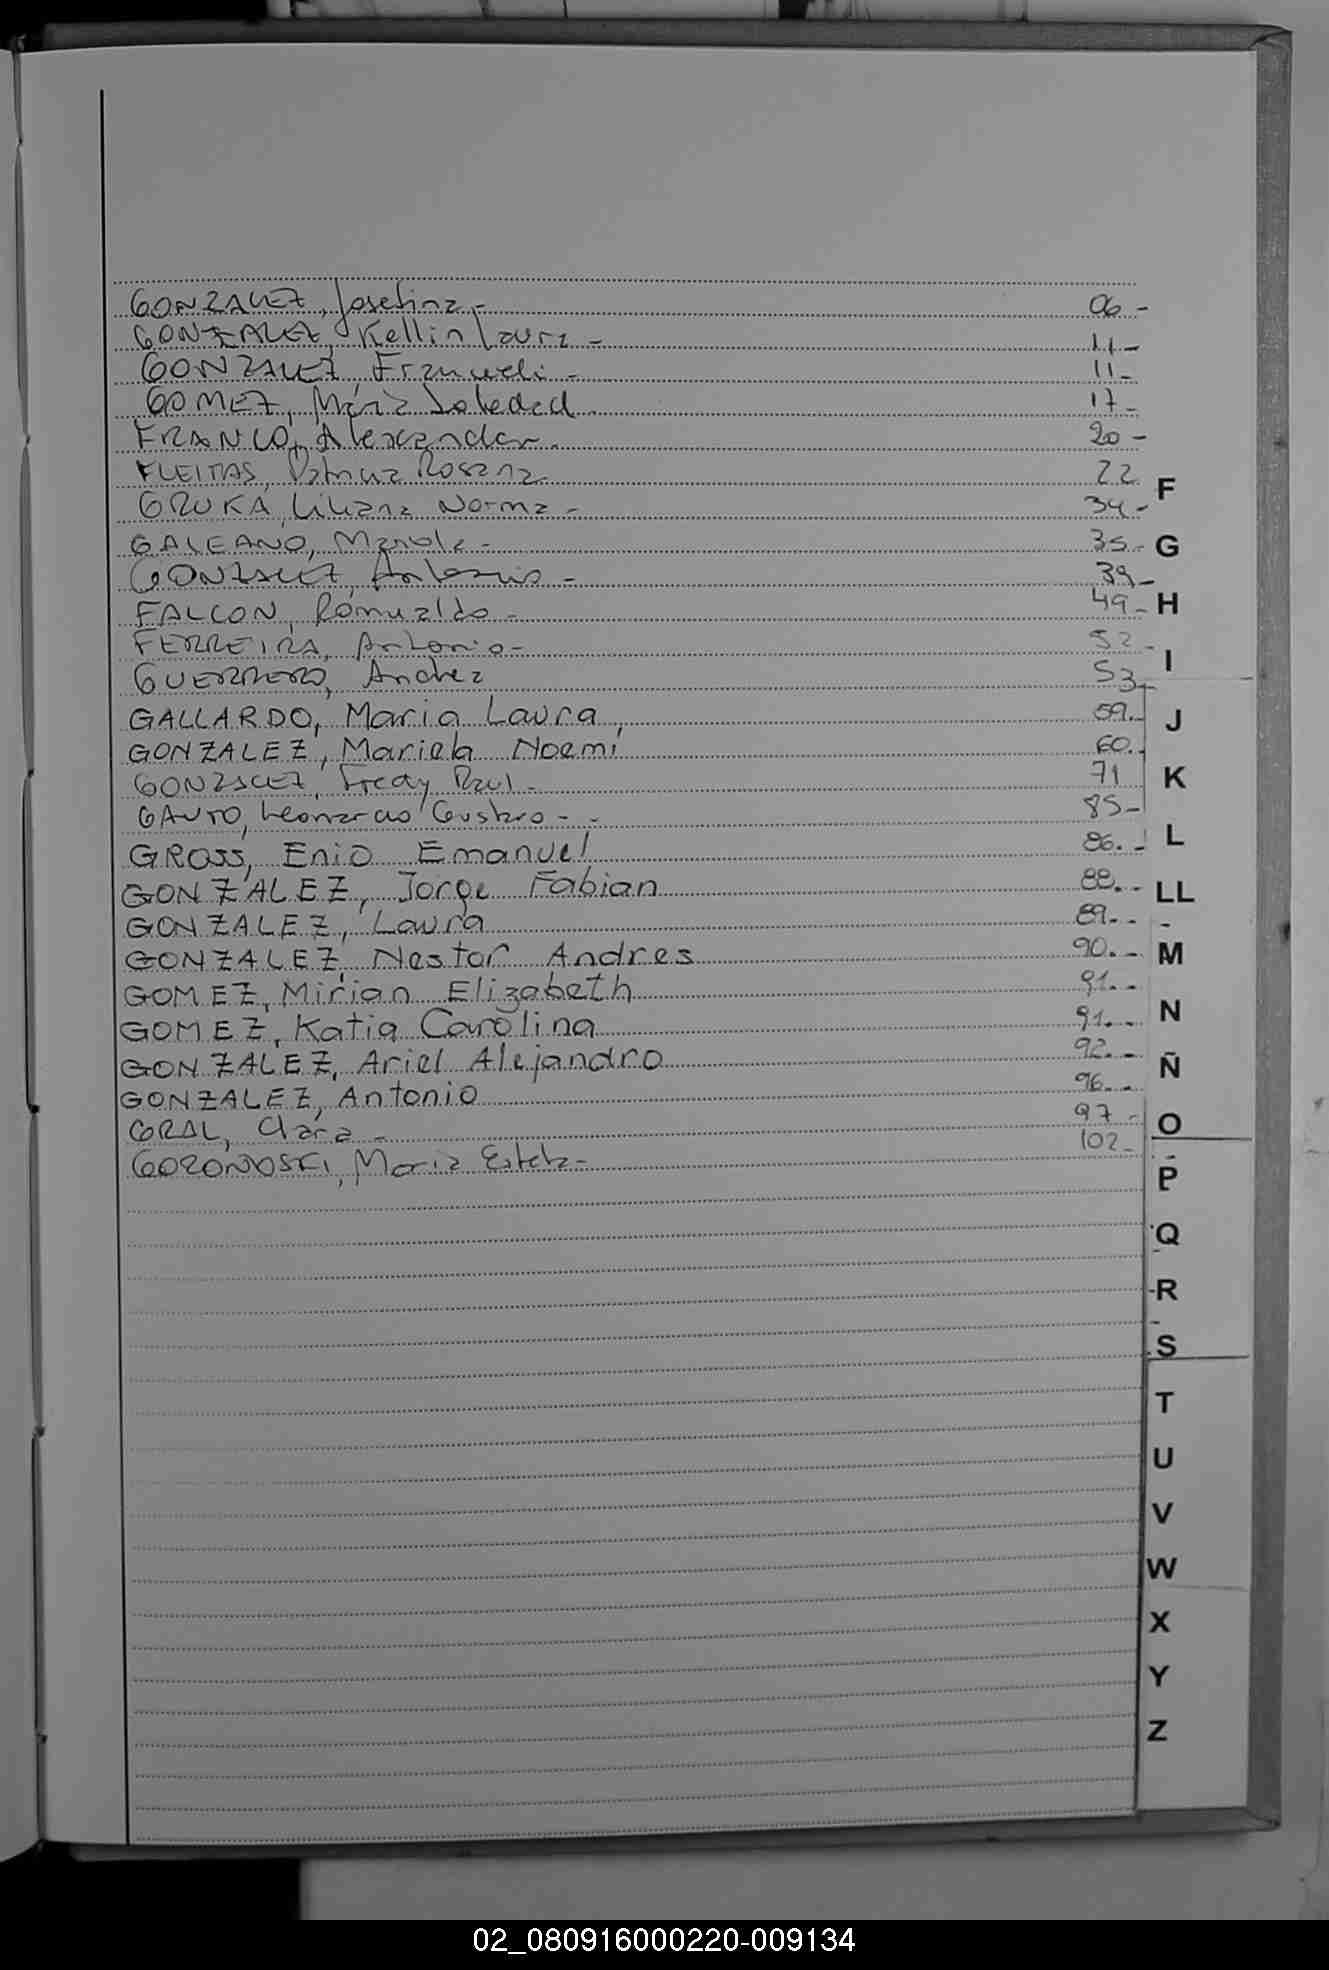 GONZALEZ, Josefina - 06 -
GONZALEZ, Kellin Laura - 11 -
GONZALEZ, Franueli - 11 -
GOMEZ, María Soledad 17 -
FRANCO, Alexander 20 -
FLEITAS, Patricia Rosana 22
GRUKA, Liliana Norma - 34 -
GALEANO, Mariola - 35 -
GONZALEZ, Antonio - 39 -
FALCON, Romualdo - 49 -
FERREIRA, Antonio - 52 -
GUERRERO, Andrez 53 -
GALLARDO, Maria Laura, 59. -
GONZALEZ, Mariela Noemí 60. -
GONZALEZ, Fredy Raul - 71
GAUTO, Leonardo Gustavo - - 85 -
GROSS, Enio Emanuel 86. -
GONZALEZ, Jorge Fabian 88. -
GONZALEZ, Laura 89. -
GONZALEZ, Nestor Andres 90. -
GOMEZ, Mirian Elizabeth 91. -
GOMEZ, Katia Carolina 91. -
GONZALEZ, Ariel Alejandro 92. -
GONZALEZ, Antonio 96. -
GRAL, Clara - 97 -
GORONOSKI, Maria Estela - 102 -
F
G
H
I
J
K
L
LL
M
N
Ñ
O
P
Q
R
S
T
U
V
W
X
Y
Z
02_080916000220-009134